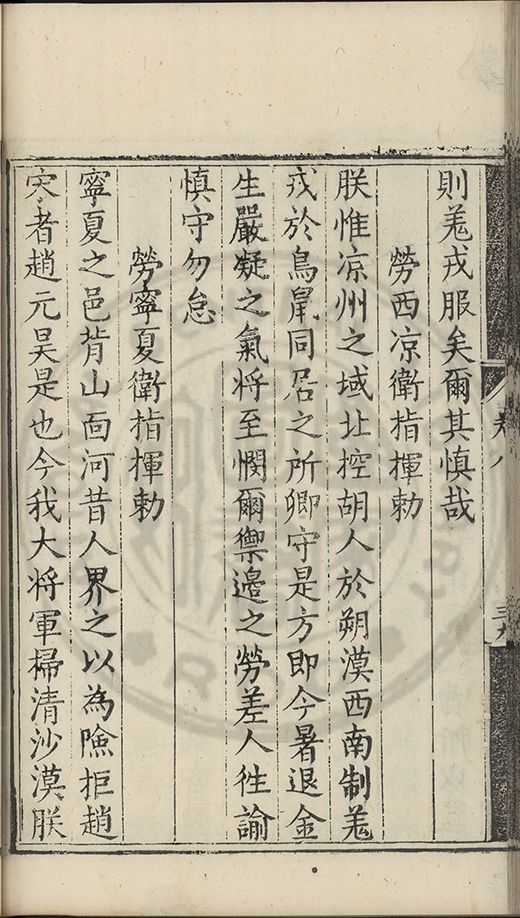 則羗戎服矣爾其慎哉
勞西凉衛指揮勅
朕惟凉州之域北控胡人於朔漠西南制羗
戎於鳥鼠同居之所卿守是方即今暑退金
生嚴凝之氣将至憫爾禦邊之勞差人徃諭
慎守勿怠
勞寧夏衛指揮勅
寧夏之邑背山面河昔人界之以為險拒趙
宋者趙元昊是也今我大将軍掃清沙漠朕